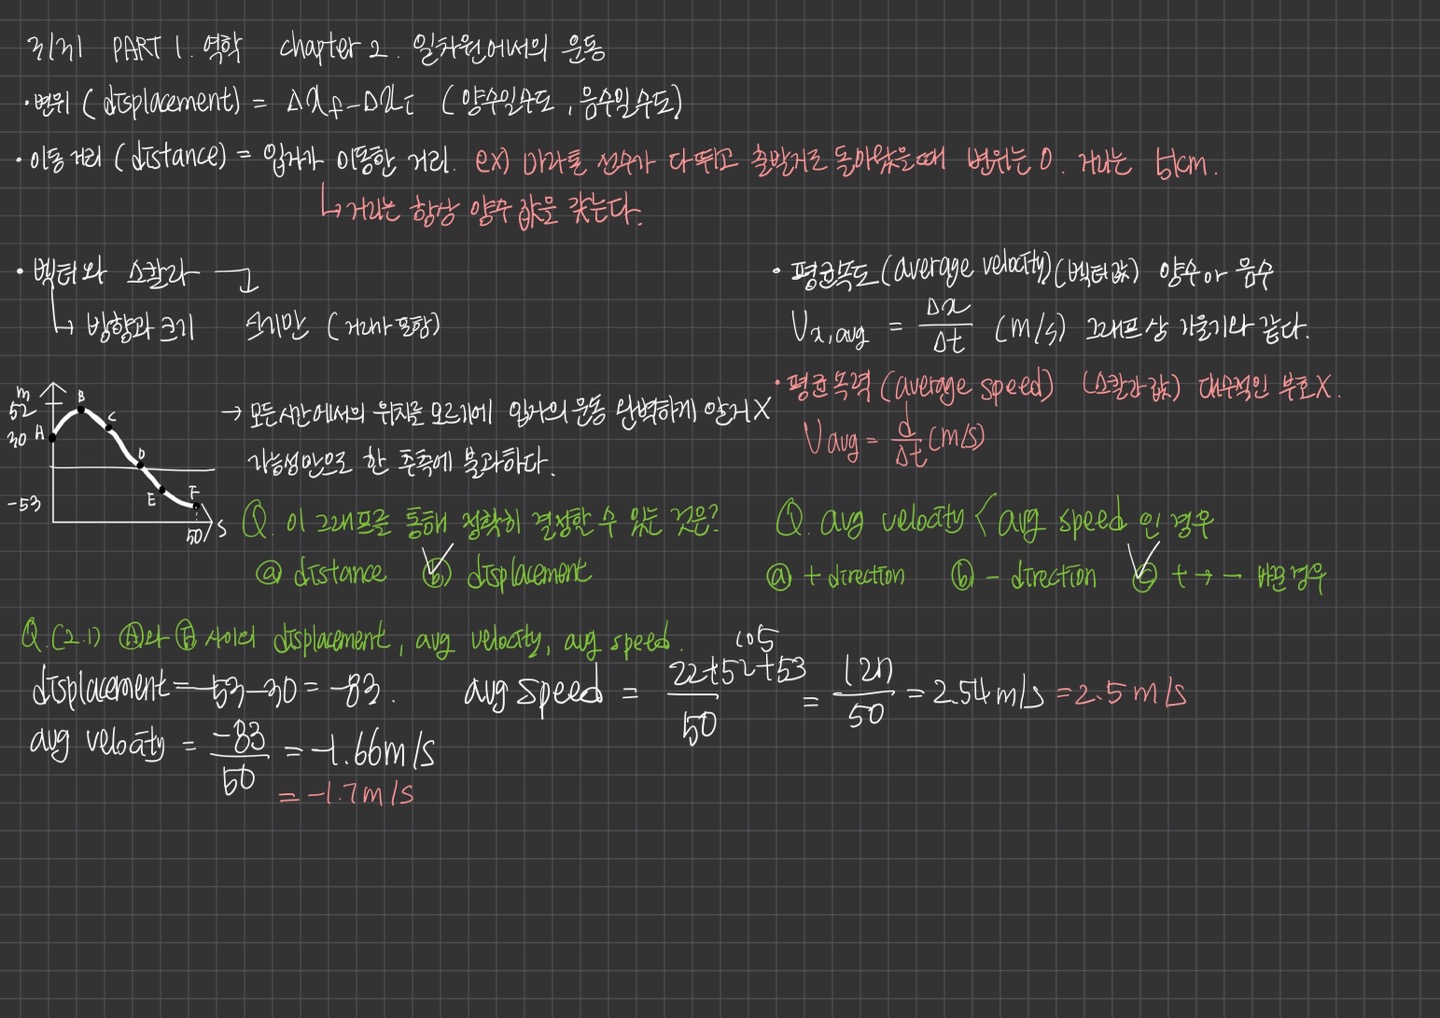 3/31 PART 1. 역학 chapter 2. 일차원에서의 운동
· 변위 (displacement) = Δx_f - Δx_i (양수일수도, 음수일수도)
· 이동 거리 (distance) = 입자가 이동한 거리. ex) 마라톤 선수가 다 뛰고 출발지로 돌아왔을때 변위는 0. 거리는 5km.
↳ 거리는 항상 양수 값을 갖는다.
· 벡터와 스칼라
↳ 방향과 크기 크기만 (거리가 포함)
· 평균속도 (average velocity) (벡터값) 양수 or 음수
V_x,avg = Δx/Δt (m/s) 그래프상 기울기와 같다.
· 평균속력 (average speed) (스칼라 값) 대수적인 부호X.
V avg = d/Δt (m/s)
m
52
30
-53
A B C D E F
50 s
→ 모든시간에서의 위치를 모르기에 입자의 운동 완벽하게 알거X
가능성만으로 한 추측에 불과하다.
Q. 이 그래프를 통해 정확히 결정할 수 있는 것은?
ⓐ distance ⓑ displacement
Q. avg velocity < avg speed 인 경우
ⓐ + direction ⓑ - direction ⓒ + → - 바뀐 경우
Q.(2.1) Ⓐ와 Ⓕ 사이의 displacement, avg velocity, avg speed.
displacement = -53-30 = -83.
avg velocity = -83/50 = -1.66m/s
= -1.7m/s
105
avg speed = 22+52+53/50 = 127/50 = 2.54m/s = 2.5m/s